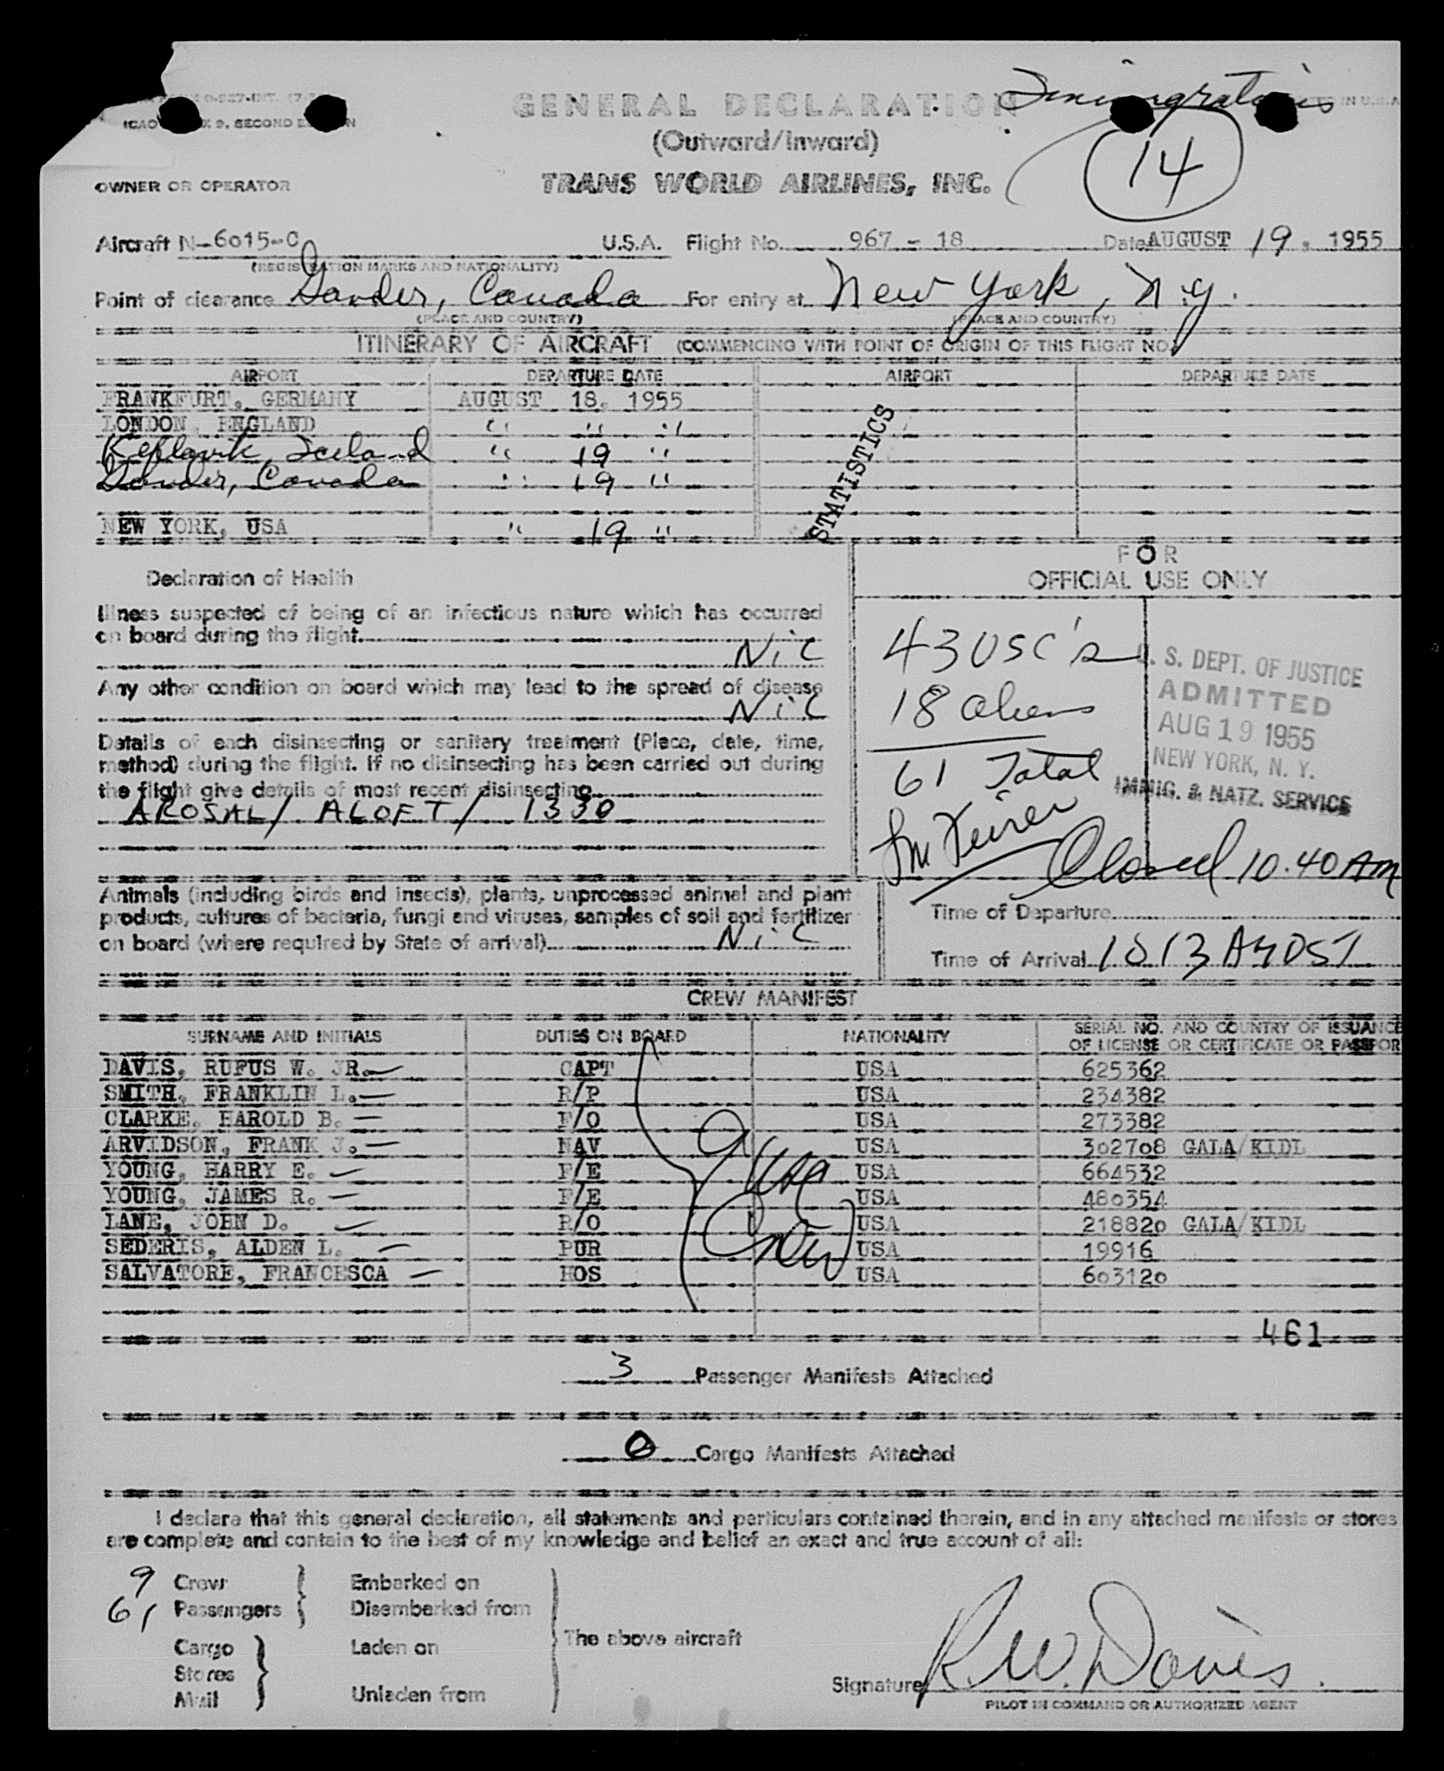 Immigration
ICAO ANNEX 9, SECOND EDITION
GENERAL DECLARATION
(Outward/Inward)
14
OWNER OR OPERATOR
TRANS WORLD AIRLINES, INC.
Aircraft N-6015-C U.S.A. Flight No. 967 - 18 Date AUGUST 19, 1955
(REGISTRATION MARKS AND NATIONALITY)
Point of clearance Gander, Canada For entry at New York, N.Y.
(PLACE AND COUNTRY) (PLACE AND COUNTRY)
ITINERARY OF AIRCRAFT (COMMENCING WITH POINT OF ORIGIN OF THIS FLIGHT NO.)
AIRPORT DEPARTURE DATE AIRPORT DEPARTURE DATE
FRANKFURT, GERMANY AUGUST 18, 1955
LONDON, ENGLAND " " "
Keflavik, Iceland " 19 "
Gander, Canada " 19 "
NEW YORK, USA " 19 "
STATISTICS
Declaration of Health
Illness suspected of being of an infectious nature which has occurred
on board during the flight.
Nil
Any other condition on board which may lead to the spread of disease
Nil
Details of each disinsecting or sanitary treatment (Place, date, time,
method) during the flight. If no disinsecting has been carried out during
the flight give details of most recent disinsecting
AROSAL/ ALOFT/ 1330
Animals (including birds and insects), plants, unprocessed animal and plant
products, cultures of bacteria, fungi and viruses, samples of soil and fertilizer
on board (where required by State of arrival) Nil
FOR
OFFICIAL USE ONLY
43 USC's
18 aliens
61 Total
U. S. DEPT. OF JUSTICE
ADMITTED
AUG 19 1955
NEW YORK, N. Y.
IMMIG. & NATZ. SERVICE
Closed 10.40 AM
Time of Departure
Time of Arrival 1013 AM DST
CREW MANIFEST
SURNAME AND INITIALS DUTIES ON BOARD NATIONALITY SERIAL NO. AND COUNTRY OF ISSUANCE
OF LICENSE OR CERTIFICATE OR PASSPOR
DAVIS, RUFUS W. JR. CAPT USA 625362
SMITH, FRANKLIN L. R/P USA 234382
CLARKE, HAROLD B. F/O USA 273382
ARVIDSON, FRANK J. NAV USA 302708 GALA/KIDL
YOUNG, HARRY E. F/E USA 664532
YOUNG, JAMES R. F/E USA 480354
LANE, JOHN D. R/O USA 218820 GALA/KIDL
SEDERIS, ALDEN L. PUR USA 19916
SALVATORE, FRANCESCA HOS USA 603120
9 USA
Crew
461
3 Passenger Manifests Attached
0 Cargo Manifests Attached
I declare that this general declaration, all statements and particulars contained therein, and in any attached manifests or stores
are complete and contain to the best of my knowledge and belief an exact and true account of all:
9 Crew Embarked on
61 Passengers Disembarked from
The above aircraft
Cargo Laden on
Stores
Mail Unladen from
Signature R W. Davis.
PILOT IN COMMAND OR AUTHORIZED AGENT